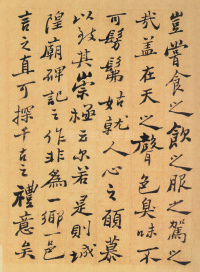 豈嘗食之飲之服之駕之
哉盖在天之聲色臭味不
可髣髴姑就人心之願慕
以致其崇極云尓若是則城
隍廟碑記之作非為一鄉一邑
言之直可探千古之禮意矣